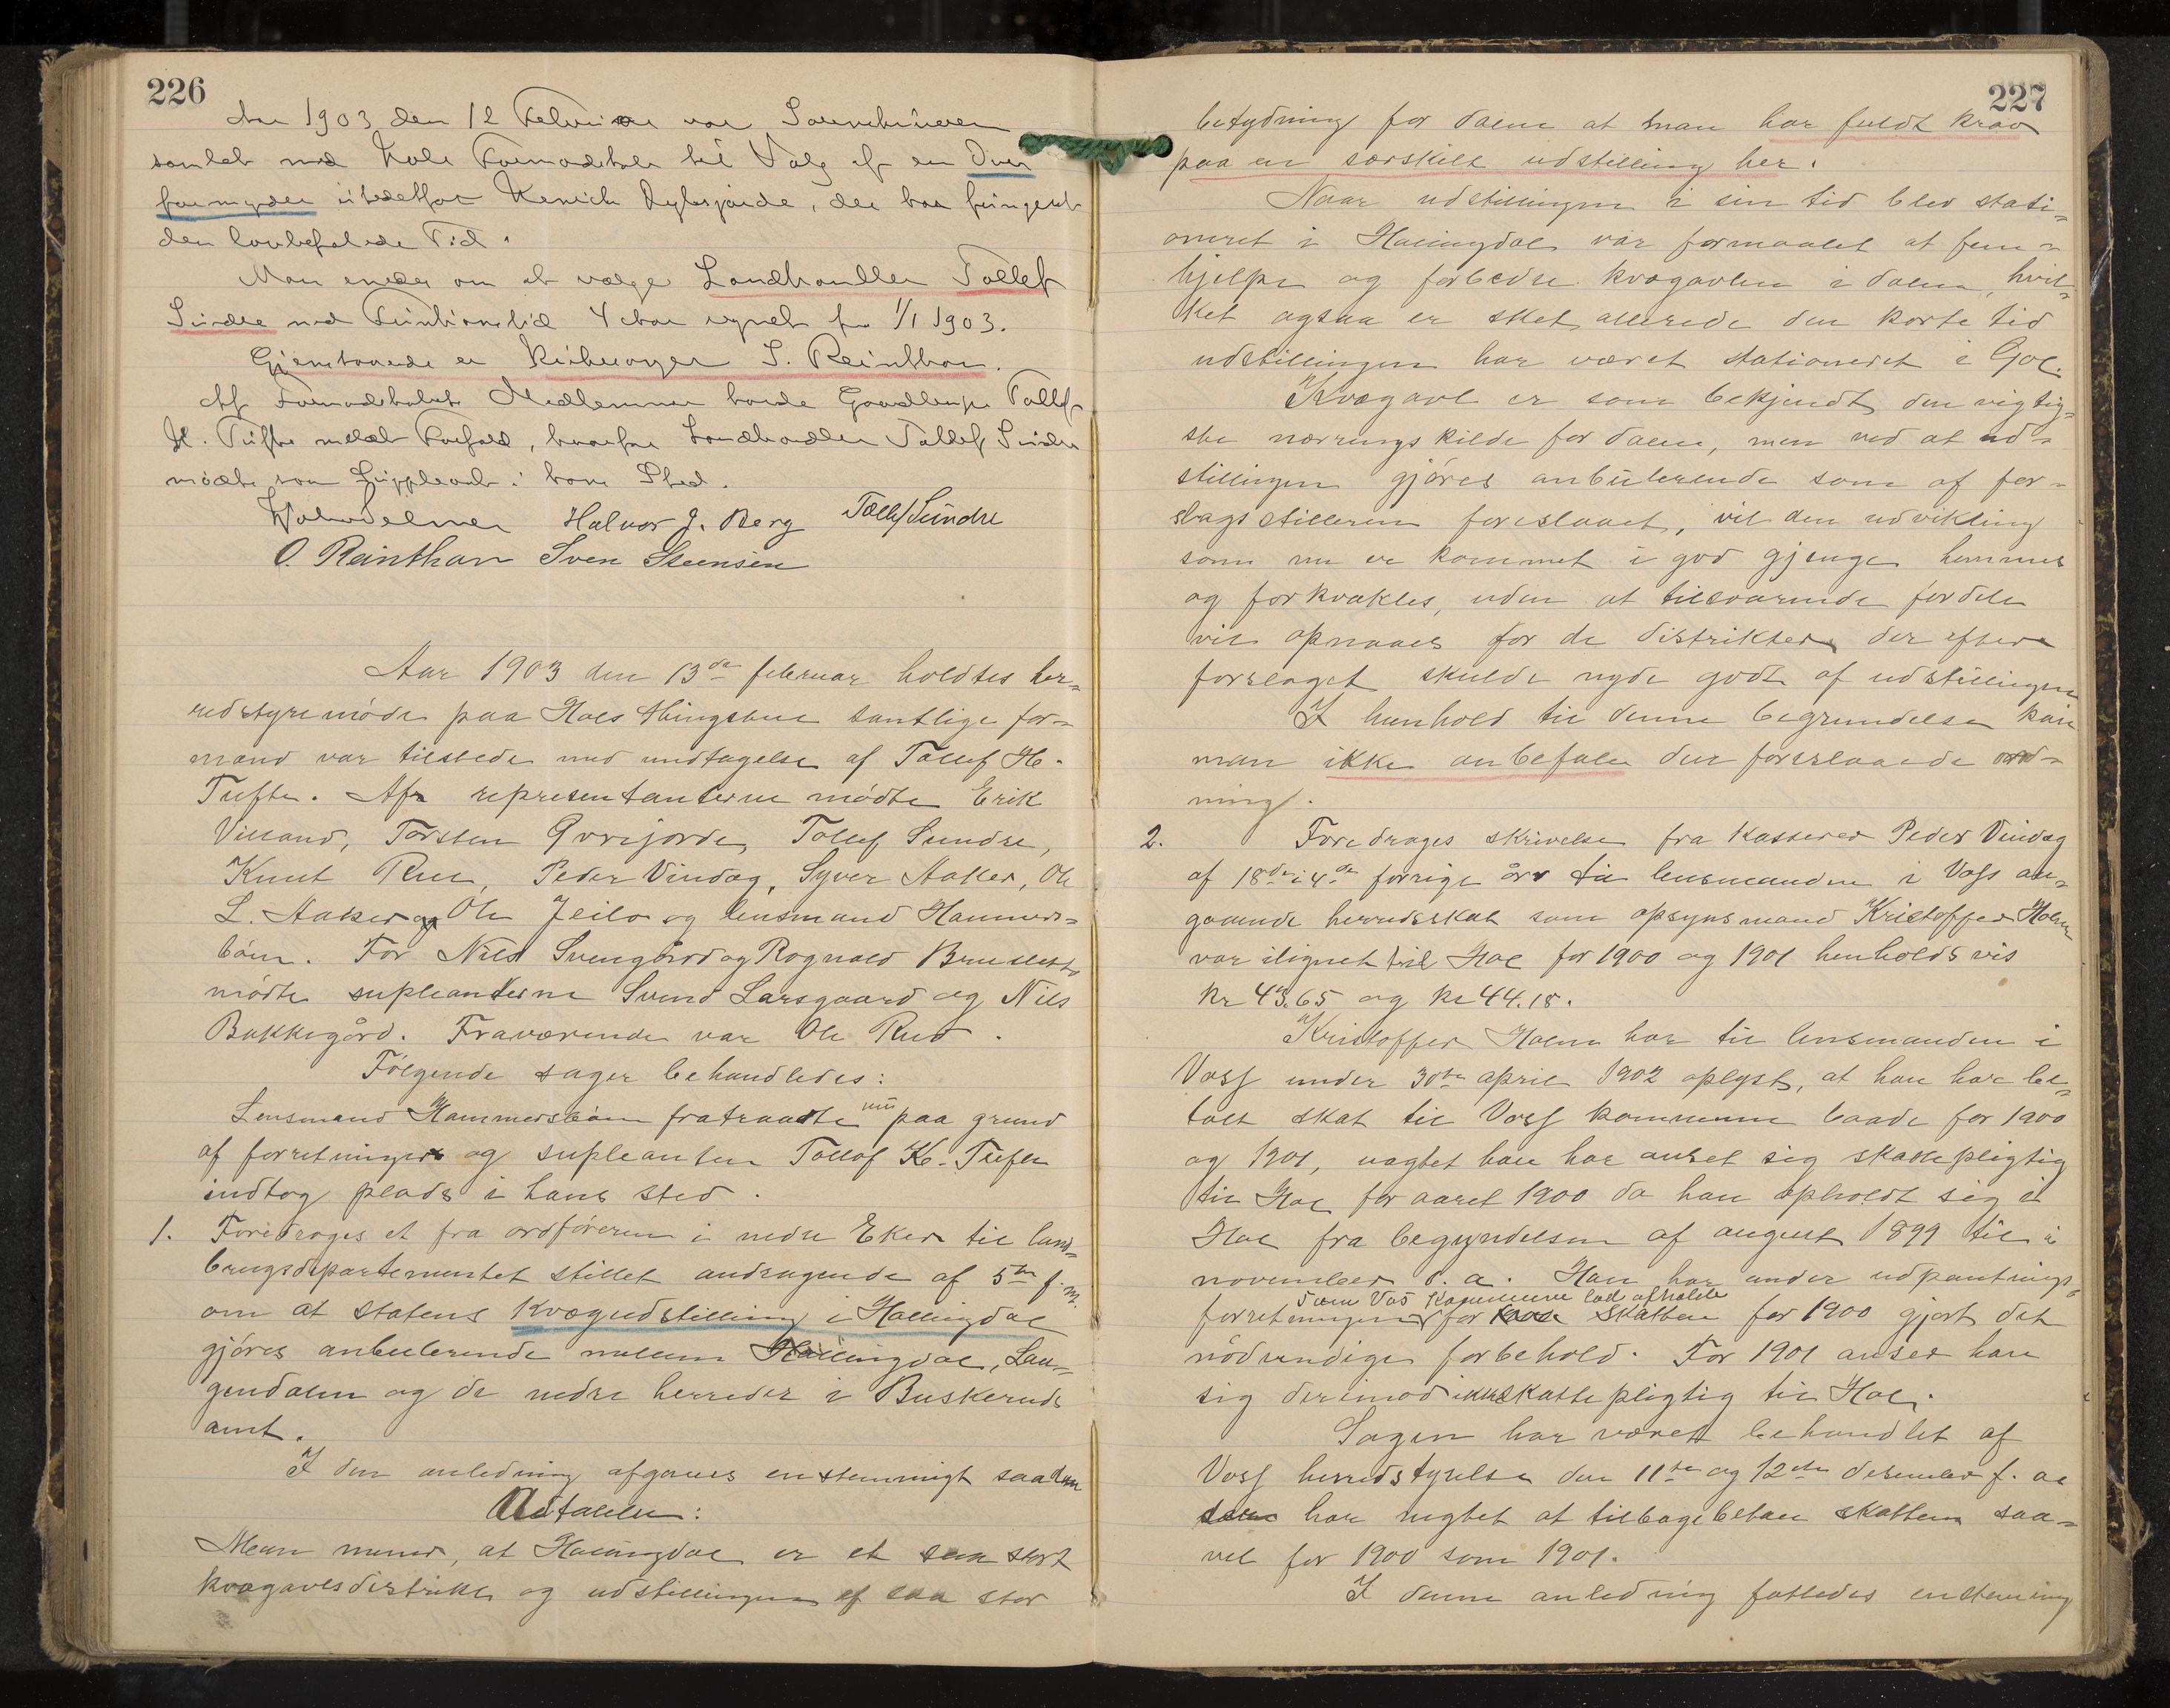 226
Aar 1903 den 12 Februar var Sorenskriveren
samlet med Hols Formandskab til Valg af en Over
formynder istedetfor Henrik Dylesjorde, der har fungeret
den lovbefalede Tid.
Man enedes om at vælge Landhandler Tollef
Sundre med Funktionstid 4 Aar regnet fra 1/1 1903.
Gjenstaaende er Kirkesanger O. Reinthon.
Af Formandskabets Medlemmer havde Gaardbruger Tollef
H. Tufte meldt Forfald, hvorfor Landhandler Tollef Sundre
mødte som Suppleant i hans Sted.
Halvor J. Berg Tollef Sundre
O. Reinthon Sven Steensen
Aar 1903 den 13de februar holdtes her-
redstyremöde paa Hols thingstue samtlige for-
mænd var tilstede med undtagelse af Tollef H.
Tufte. Af representanterne mödte Erik
Villand, Torsten Gvrejorde, Tollef Sundre,
Knut Rue, Peder Vindag, Syver Aaker, Ole
L. Aaker og Ole Jeilo og lensmand Hammers-
böen. For Nils Svengård og Rognald Bruslett
mödte supleanterne Svend Larsgaard og Nils
Bakkegård. Fraværende var Ole Rud.
Fölgende sager behandledes:
Lensmand Hammersböen fratraadte nu paa grund
af forretninger og supleanten Tollof K. Tufte
indtog plads i hans sted.
1. Foredroges et fra ordföreren i nedre Eker til land-
brugsdepartementet stillet andragende af 5te f. m.
om at statens kvægudstilling i Hallingdal
gjöres anbulerende mellem Hallingdal, Lau-
gendalen og de nedre herreder i Buskeruds
amt.
I den anledning afgaves enstemmigt saadan
Udtalelse:
Man mener, at Hallingdal er et saa stort
kvægavlsdistrikt og udstillingen af saa stor
227
betydning for dalen at man har fuldt krav
paa en særskilt udstilling her.
Naar udstillingen i sin tid blev stati-
oneret i Hallingdal var formaalet at frem-
hjelpe og forbedre kvægavlen i dalen, hvil-
ket ogsaa er sket allerede den korte tid
udstillingen har været stationeret i Gol.
Kvægavl er som bekjendt den vigtig-
ste næringskilde for dalen, men ved at ud-
stillingen gjöres anbulerende som af for-
slagsstilleren foreslaaet, vil den udvikling
som nu er kommet i god gjenge hemmes
og forkvakles, uden at tilsvarende fordele
vil opnaaes for de distrikter, der efter
forslaget skulde nyde godt af udstillingen
I henhold til denne begrundelse kan
man ikke anbefale den foreslaaede ord-
ning.
2. Foredroges skrivelse fra kasserer Peder Vindag
af 18de i 4de forrige år til lensmanden i Voss an-
gaaende herredsskat som opsynsmand Kristoffer Holm
var ilignet til Hol for 1900 og 1901 henholdsvis
kr 43.65 og kr 44.18.
Kristoffer Holm har til lensmanden i
Voss under 30te april 1902 oplyst, at han har be-
talt skat til Voss kommune baade for 1900
og 1901, uagtet han har anset sig skattepligtig
til Hol for aaret 1900 da han opholdt sig i
Hol fra begyndelsen af august 1899 til i
november s. a. Han har under udpantnings-
som Vos kommune lod afholde
forretningen for skatten for 1900 gjort det
nödvendige forbehold. For 1901 anser han
sig derimod ikke skattepligtig til Hol.
Sagen har været behandlet af
Voss herredsstyrelse den 11te og 12te desember f. aa
som har negtet at tilbagebetale skatten saa-
vel for 1900 som 1901.
I denne anledning fattedes enstemmig